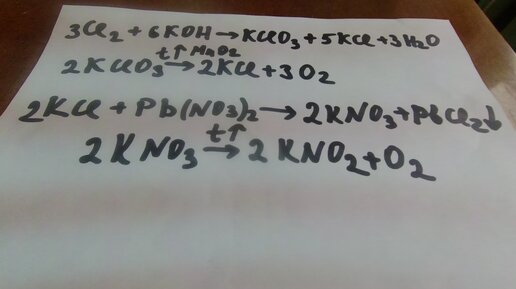 3Cl₂ + 6KOH → KClO₃ + 5KCl + 3H₂O
t↑ MnO₂
2KClO₃ → 2KCl + 3O₂
2KCl + Pb(NO₃)₂ → 2KNO₃ + PbCl₂↓
t↑
2KNO₃ → 2KNO₂ + O₂